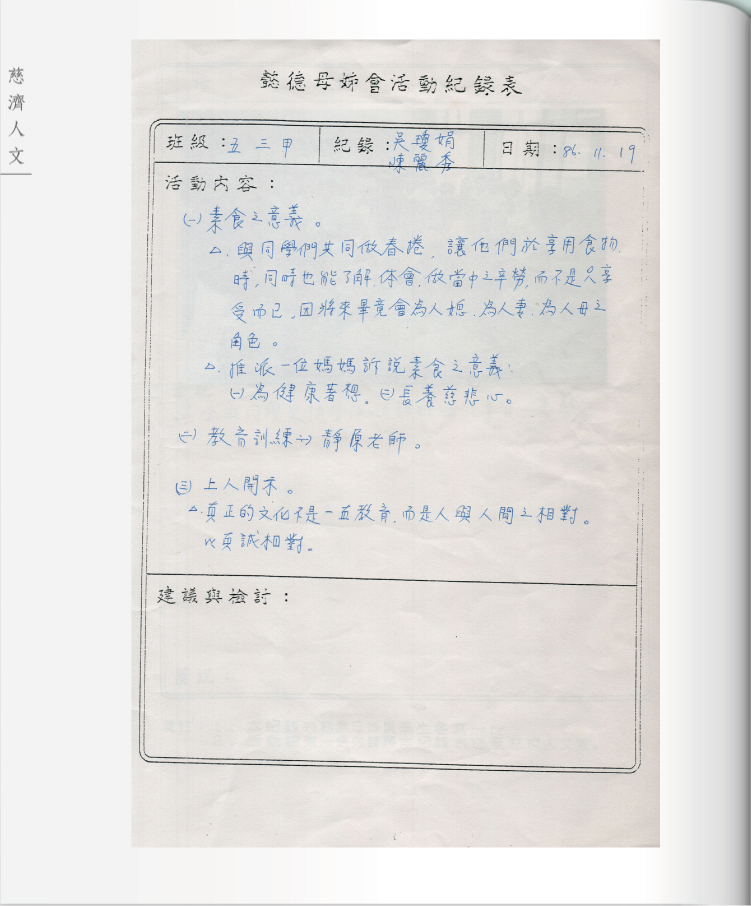 慈濟人文
懿德母姊會活動紀錄表
班級：五三甲 紀錄：吳瓊娟 陳麗秀 日期：86.11.19
活動內容：
(一)素食之意義。
△.與同學們共同做春捲，讓他們於享用食物
時，同時也能了解.体會.做當中之辛勞，而不是只享
受而已，因將來畢竟會為人媳.為人妻.為人母之
角色。
△.推派一位媽媽訴說素食之意義：
(一)為健康著想。(二)長養慈悲心。
(二)教育訓練→靜原老師。
(三)上人開示。
△.真正的文化不是一五教育.而是人與人間之相對。
以真誠相對。
建議與檢討：